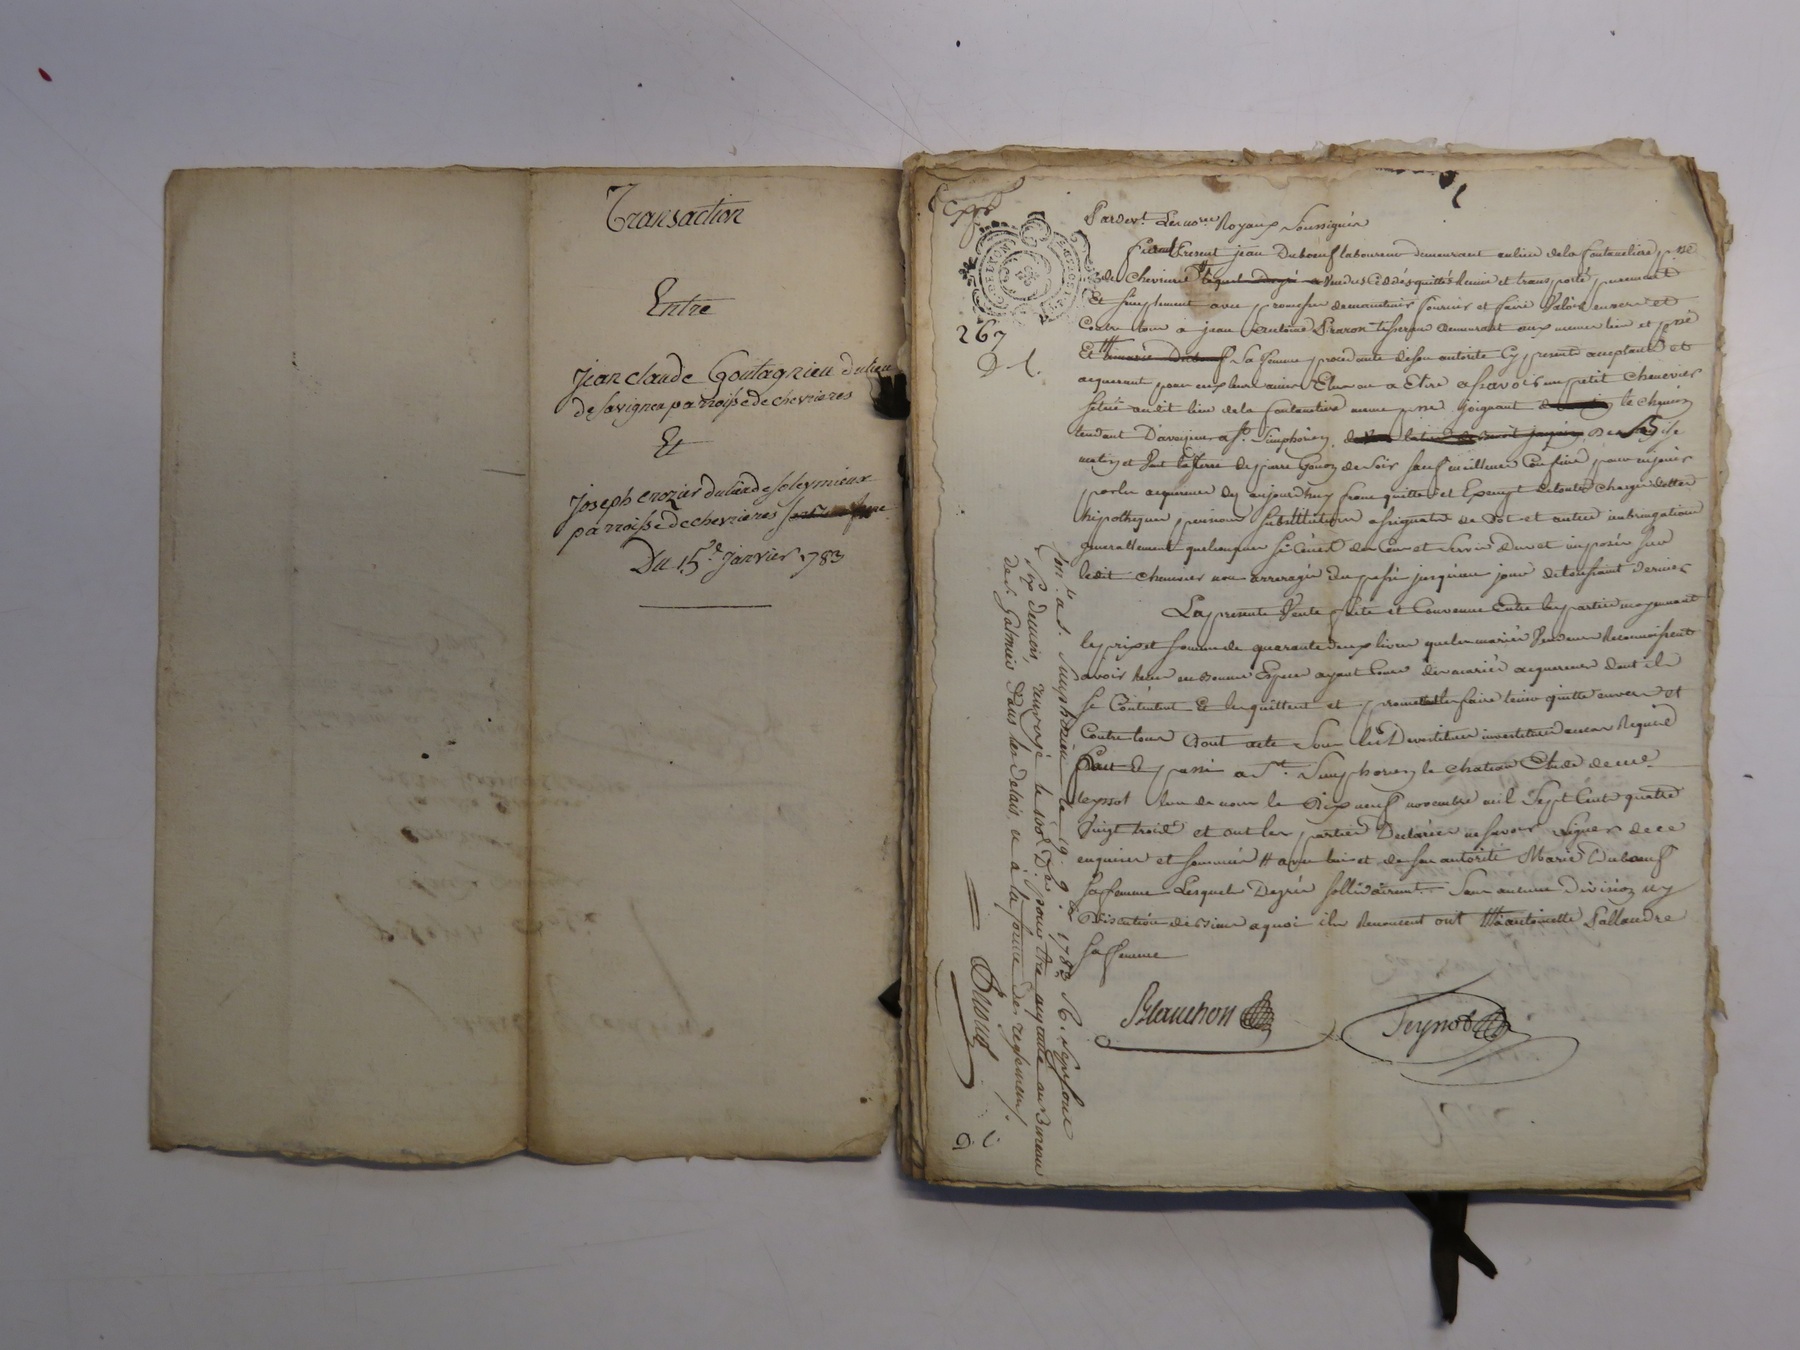 Transaction
Entre
Jean claude Goutagnieu du lieu
de savignea parroisse de chevrieres
Et
Joseph crozier du lieu de soleymieux
parroisse de chevrieres
Du 15.e Janvier 1783
267
Pardevt Les nores Royaux Soussignés
Present jean Duboeuf laboureur demeurant au lieu de la fontaneliere psse
de Chevriere vendus Cédés quittés Remis et transporté purement
Et simplement avec promesse de maintenir fournir et faire Valoir envers et
Contre tous a jean Antoine Pravon tissereau demeurant aux meme lieu et psse
Et Sa femme procedante de son autorité Cy presents acceptants et
acquerant pour eux leurs amis Elus ou a Elire a savoir un petit Chenevier
Situé au dit lieu de la fontaneliere meme psse joignant le chemin
tendant D'aveyzieu a St Simphorien de bize
matin et vent la terre de pierre Gonon de soir sauf meilleurs Confins pour en jouir
par les acquereurs dez aujourdhuy franc quitte et Exempt de toutes charges dettes
hipotheques pensions substitution assignats de Dot et autres imbringations
generallement quelconques Si C'est des Cens et Servis Dus et imposés sur
ledit chenevier non arreragés du passé jusqu'au jour de toussaint dernier
La presente Vente faite et Convenue Entre les parties moyennant
le prix et somme de quarante deux livres que les mariés Vendeurs Reconnoissent
avoir Reçu en bonnes Especes ayant Cours des mariés acquereurs dont ils
se Contentent Et les quittent et promettent les faire tenir quitte envers et
Contre tous Dont acte sous les Devestitures investitures au cas Requis
Fait & passé a St Simphorien le chateau Etude de me
teynot l'un de nous le Dix neuf novembre mil Sept Cent quatre
Vingt trois et ont les parties Declarées ne savoir Signer de ce
enquises et sommées # avec lui et de son autorité Marie Duboeuf
sa femme Lesquels Degrés sollidairement Sans aucune division ny
Discution de biens a quoi ils Renoncent ont ## antoinette Pallandre
Sa femme
Blanchon Teynot
Conlé a St Simphorien le 19. 9bre 1783 R. sept sous
Six deniers, renvoyé le 100e Der pour etre acquitté au Bureau
de St Galmier dans les delais, et a la forme des reglemens.